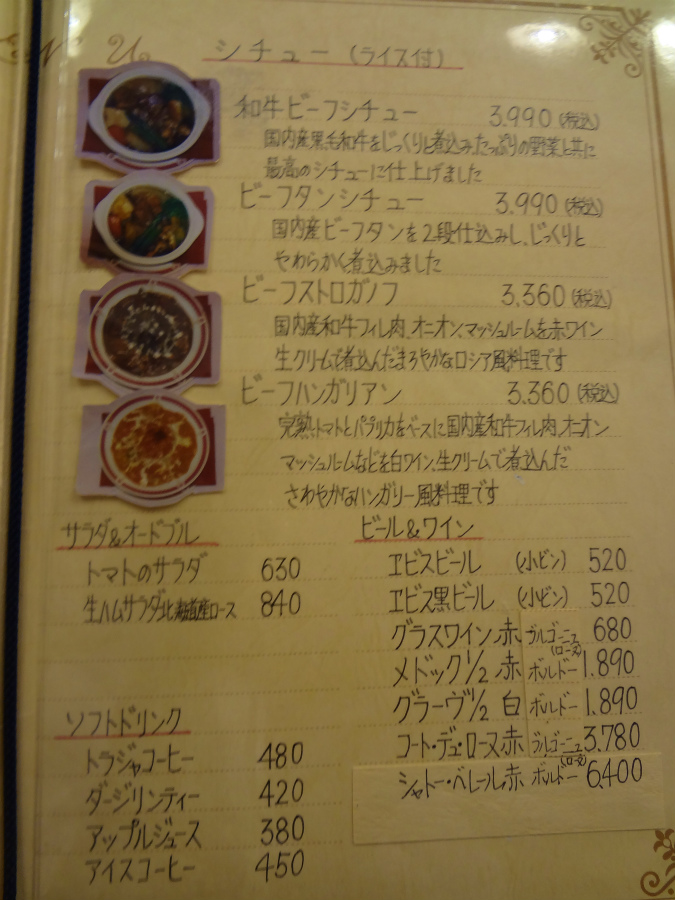 シチュー (ライス付)
和牛ビーフシチュー 3.990 (税込)
国内産黒毛和牛をじっくりと煮込みたっぷりの野菜と共に
最高のシチューに仕上げました
ビーフタンシチュー 3.990 (税込)
国内産ビーフタンを2段仕込みし、じっくりと
やわらかく煮込みました
ビーフストロガノフ 3.360 (税込)
国内産和牛フィレ肉、オニオン、マッシュルームを赤ワイン
生クリームで煮込んだまろやかなロシア風料理です
ビーフハンガリアン 3.360 (税込)
完熟トマトとパプリカをベースに国内産和牛フィレ肉、オニオン
マッシュルームなどを白ワイン、生クリームで煮込んだ
さわやかなハンガリー風料理です
サラダ&オードブル
トマトのサラダ 630
生ハムサラダ北海道産ロース 840
ソフトドリンク
トラジャコーヒー 480
ダージリンティー 420
アップルジュース 380
アイスコーヒー 450
ビール&ワイン
ヱビスビール (小ビン) 520
ヱビス黒ビール (小ビン) 520
グラスワイン赤 ブルゴーニュ(ローヌ) 680
メドック1/2 赤 ボルドー 1.890
グラーヴ1/2 白 ボルドー 1.890
コート・デュ・ローヌ赤 ブルゴーニュ(ローヌ) 3.780
シャトー・ベレール赤 ボルドー 6.400